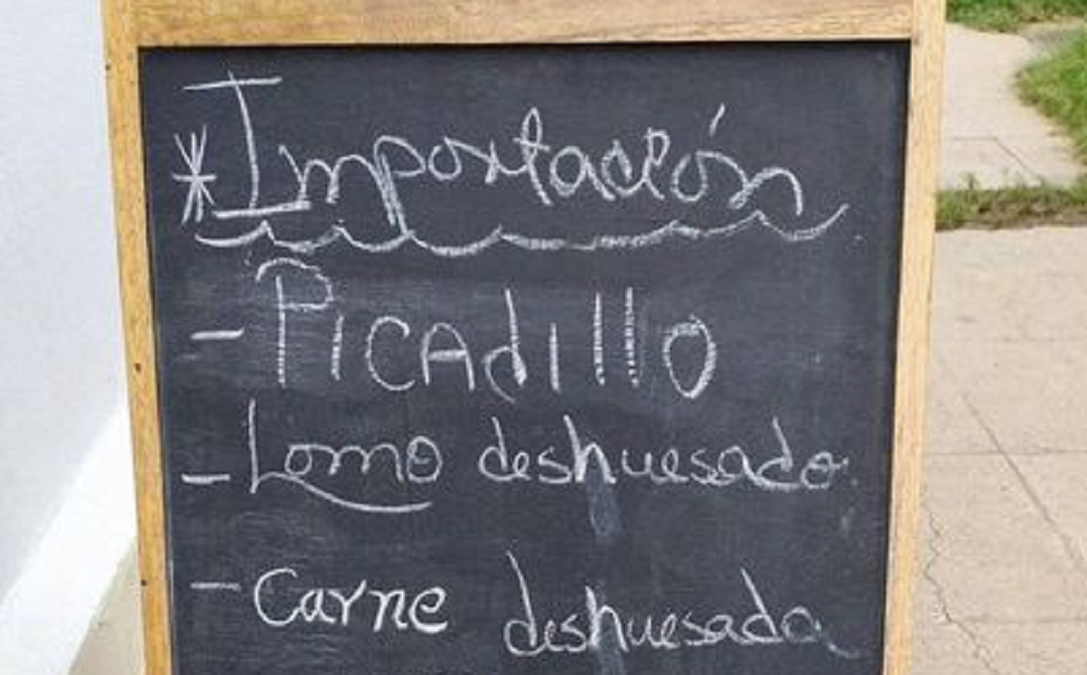 * Importación
- Picadillo
- Lomo deshuesado.
- Carne deshuesada